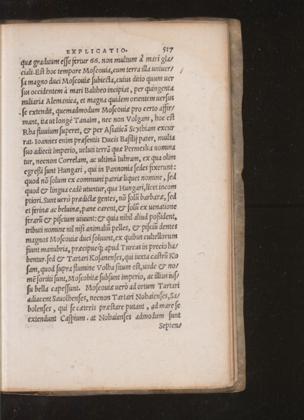 EXPLICATIO. 517
quæ graduum esse fertur 66. non multum à mari gla
ciali. Est hoc tempore Moscouia, cum terra illa uniuer
sa magno duci Moscouiæ subiecta, cuius ditio quum uer
sus occidentem à mari Baltheo incipiat, per quingenta
miliaria Alemanica, et magna quidem orientem uersus
se extendit, quemadmodum Moscouiæ pro certo affir
mant, ita ut longè Tanaim, nec non Volgam, hoc est
Rha fluuium superet, & per Asiaticã Scythiam excur
rat. Ioannes enim præsentis Ducis Basilij pater, multa
suo adiecit imperio, uelut terrã quæ Permeska nomina
tur, necnon Correlam, ac ultimã Iuhram, ex qua olim
egressi sunt Hungari, qui in Pannonia sedes fixerunt:
quod nõ solum ex communi patriæ liquet nomine, sed
quod & lingua eadē utuntur, qua Hungari, licet incom
ptiori. Sunt uerò prædictæ gentes, nõ solũ barbaræ, sed
et ferinæ ac beluinæ, pane carent, & solũ ex uenatione
ferarũ & piscium uiuunt: & quia nihil aliud possident,
tributi nomine nil nisi animaliũ pelles, & piscium dentes
magno Moscouiæ duci soluunt, ex quibus cultellorum
fiunt manubria, præcipueq; apud Turcas in precio ha
bentur. sed & Tartari Kosanenses, qui iuxta castrũ Ko
san, quod supra flumine Volha situm est, unde & no=
mē sortiti sunt, Moschouitæ subsunt imperio, ac illius ius
su bella capessunt. Moscouiæ uerò ad ortum Tartari
adiacent Sauolhenses, necnon Tartari Nohaienses, Sa=
bolenses, qui se cæteris præstare putant, ad mare se
extendunt Caspium. at Nohaienses admodum sunt
Septen=